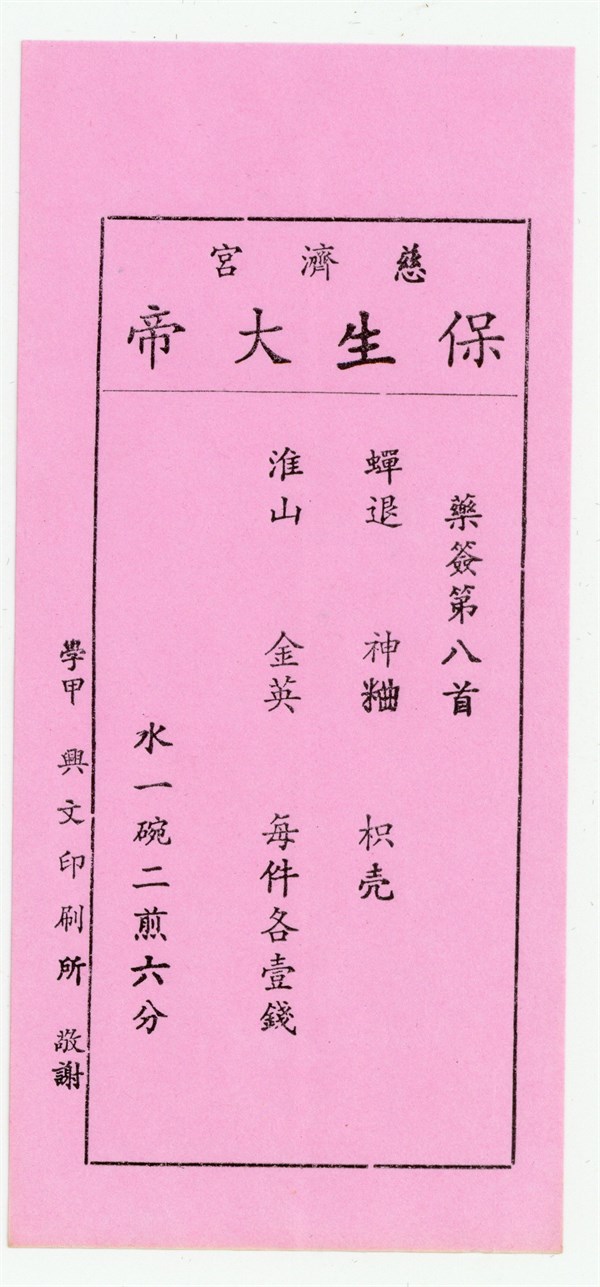 慈濟宮
保生大帝
藥簽第八首
蟬退 神粬 枳壳
淮山 金英 每件各壹錢
水一碗二煎六分
學甲 興文印刷所 敬謝